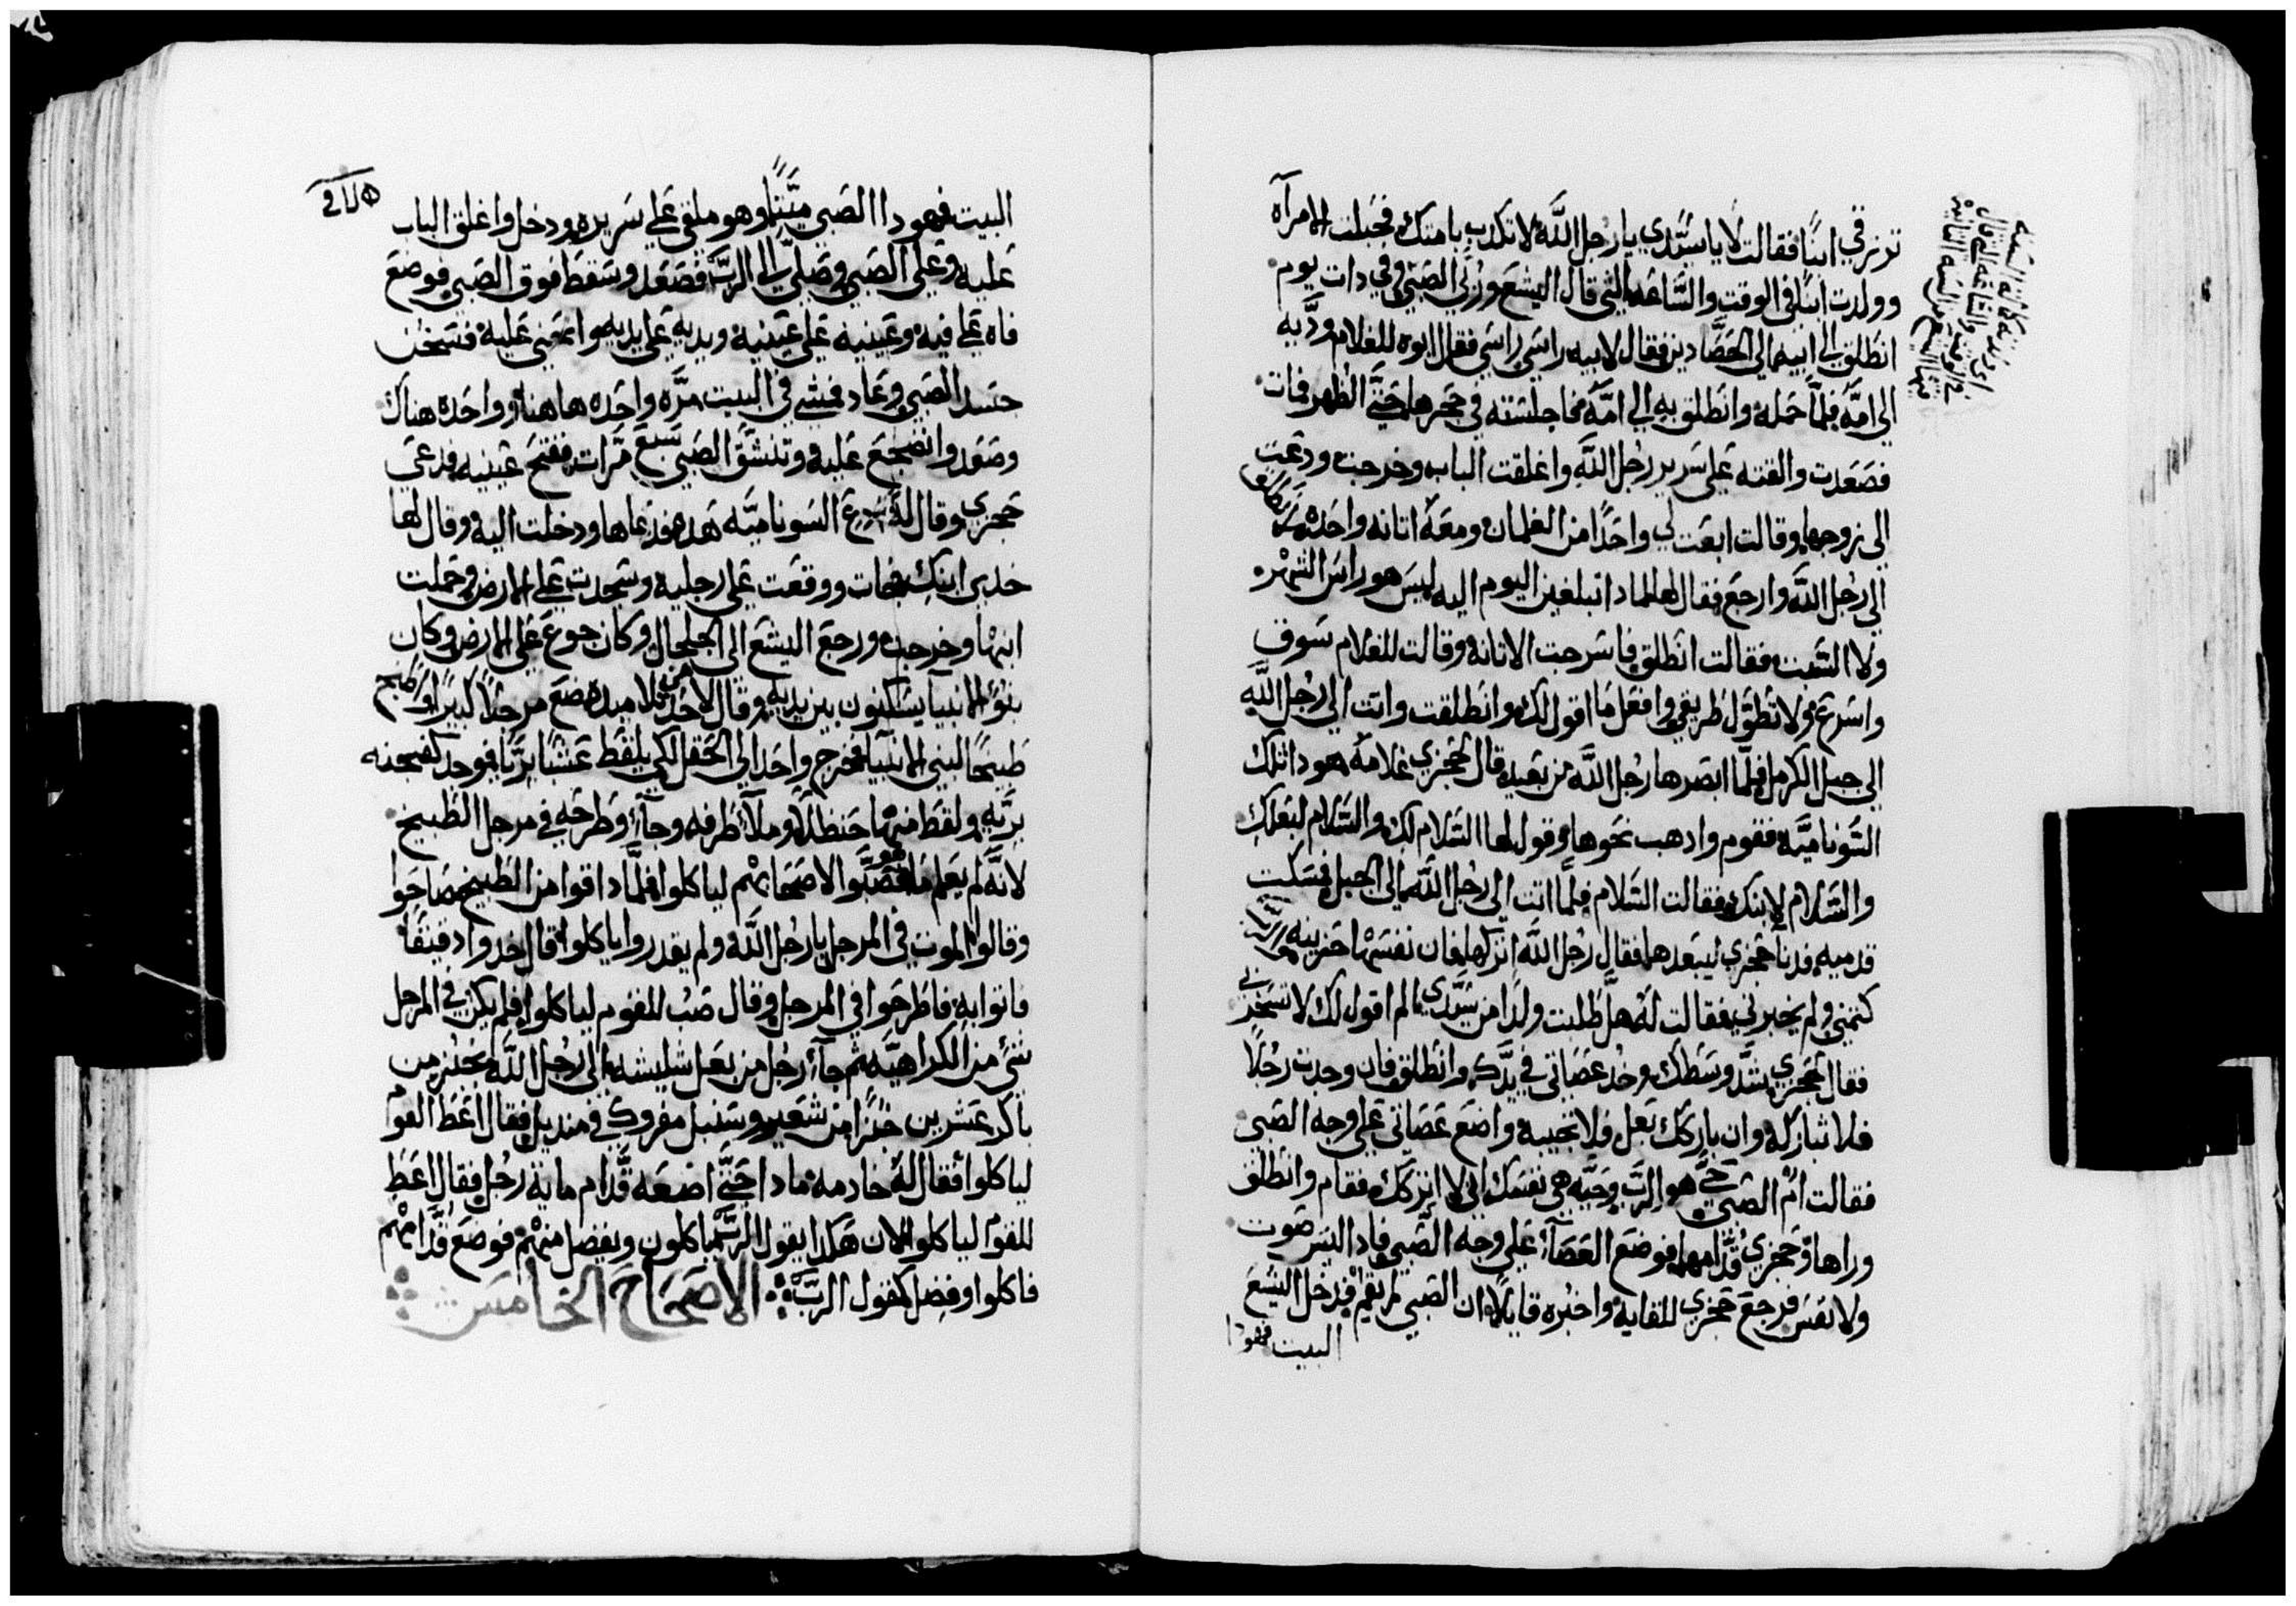 ترزقي ابنًا فقالت لا يا سيّدي يا رجل اللّه لا تكدب بامتك فحبلت الامرآه
وولدت ابنًا في الوقت والسّاعه التي قال اليشع وربي الصبي وفي دات يوم
انطلق الى ابيه الى الحصّادين فقال لابيه راسي راسي فقال ابوه للغلام ودّيه
الى امّه فلمّا حمله وانطلق به الى امّه فاجلسته في حجرها حتّي الظهر فمات
فصعدت والقته على سرير رجل اللّه واغلقت الباب وخرجت ودعت
الى زوجها وقالت ابعت لي واحدًا من الغلمان ومعه اتانه واحده
الى رجل اللّه وارجع فقال لها لمادا تبلغين اليوم اليه ليس هو راس الشهر
ولا السّبت فقالت انطلق فاسرجت الاتانه وقالت للغلام سوف
واسرع ولا تطوّل طريقي وافعل ما اقول لك وانطلقت واتت الى رجل اللّه
الى جبل الكرمل فلمّا ابصرها رجل اللّه من بعيد قال لجحزي غلامه هودا تلك
السّوناميّه فقوم وادهب نحوها وقول لها السّلام لكِ والسّلام لبعلكِ
والسّلام لابنك فقالت السّلام فلمّا اتت الى رجل اللّه الى الجبل فمسكت
قدميه فدنا جحزي ليبعدها فقال رجل اللّه اتركها فان نفسها حزينه
كتمني ولم يخبرني فقالت له هل طلبت ولدًا من سيّدي الم اقول لك لا تسخر
فقال لجحزي شدّ وسطك وخد عصاتي في يدّك وانطلق فان وجدت رجلًا
فلا تباركه وان باركك بعل فلا تجيبه واضع عصاتي على وجه الصبي
فقالت امّ الصّبي حيّ هو الربّ وحيّه هي نفسك اني لا اتركك فقام وانطلق
وراها وجحزي قدّامهما فوضع العصاة على وجه الصّبي فادا ليس صوت
ولا نفس فرجع جحزي للقايه واخبره قايلًا ان الصّبي لم يقم فدخل اليشع
البيت فهودا
البيت فهودا الصّبي ميّتًا وهو ملقي على سريره ودخل واغلق الباب
عليه وعلى الصّبي وصلّي الى الربّ فصعد وسقط فوق الصّبي فوضع
فاه على فيه وعينيه على عينيه ويديه على يديه وانحني عليه فسخن
جسد الصّبي وعاد فمشي في البيت مرّه واحده هاهنا وواحده هناك
وصعد وانضجع عليه وتنسّق الصّبي سبع مرّات ففتح عينيه فدعى
جحزي وقال له ادع السوناميّه هده فدعاها ودخلت اليه وقال لها
خدي ابنكِ فجات ووقعت على رجليه وسجدت على الارض وحملت
ابنها وخرجت ورجع اليشع الى الجلجال وكان جوع على الارض وكان
بنوا الانبيآ يسكنون بين يديه وقال لاحد من تلاميده ضع مرجلًا كبيرًا واطبخ
طبيخًا لبني الانبيآ فخرج واحد الى الحقل لكي يلقط عشبًا بريًّا فوجد كفجنه
بريّه ولقط منها حنظلًا وملأ طرفه وجآء وطرحه في مرجل الطبيخ
لانّه لم يعلم ما هو فصبّوا لاصحابهم لياكلوا فلمّا داقوا من الطبيخ صاحوا
وقالوا الموت في المرجل يا رجل اللّه ولم يقدروا ياكلوا قال خدوا دقيقًا
فاتوا به فاطرحوا في المرجل وقال صُب للقوم لياكلوا فلم يكن في المرجل
شئ من الكراهيّه ثم جآء رجل من بعل شليشه الى رجل اللّه بخبز من
باكر عشرين خبزًا من شعير وسنبل مفروك في منديل فقال اعط القوم
لياكلوا فقال له خادمه مادا حتّي اضعه قدّام مايه رجل فقال اعط
للقوم لياكلوا لان هكدا يقول الربّ ياكلون ويفضل منهم فوضع قدّامهم
فاكلوا وفضل كقول الربّ ⁘ الاصحاح الخامس ⁘